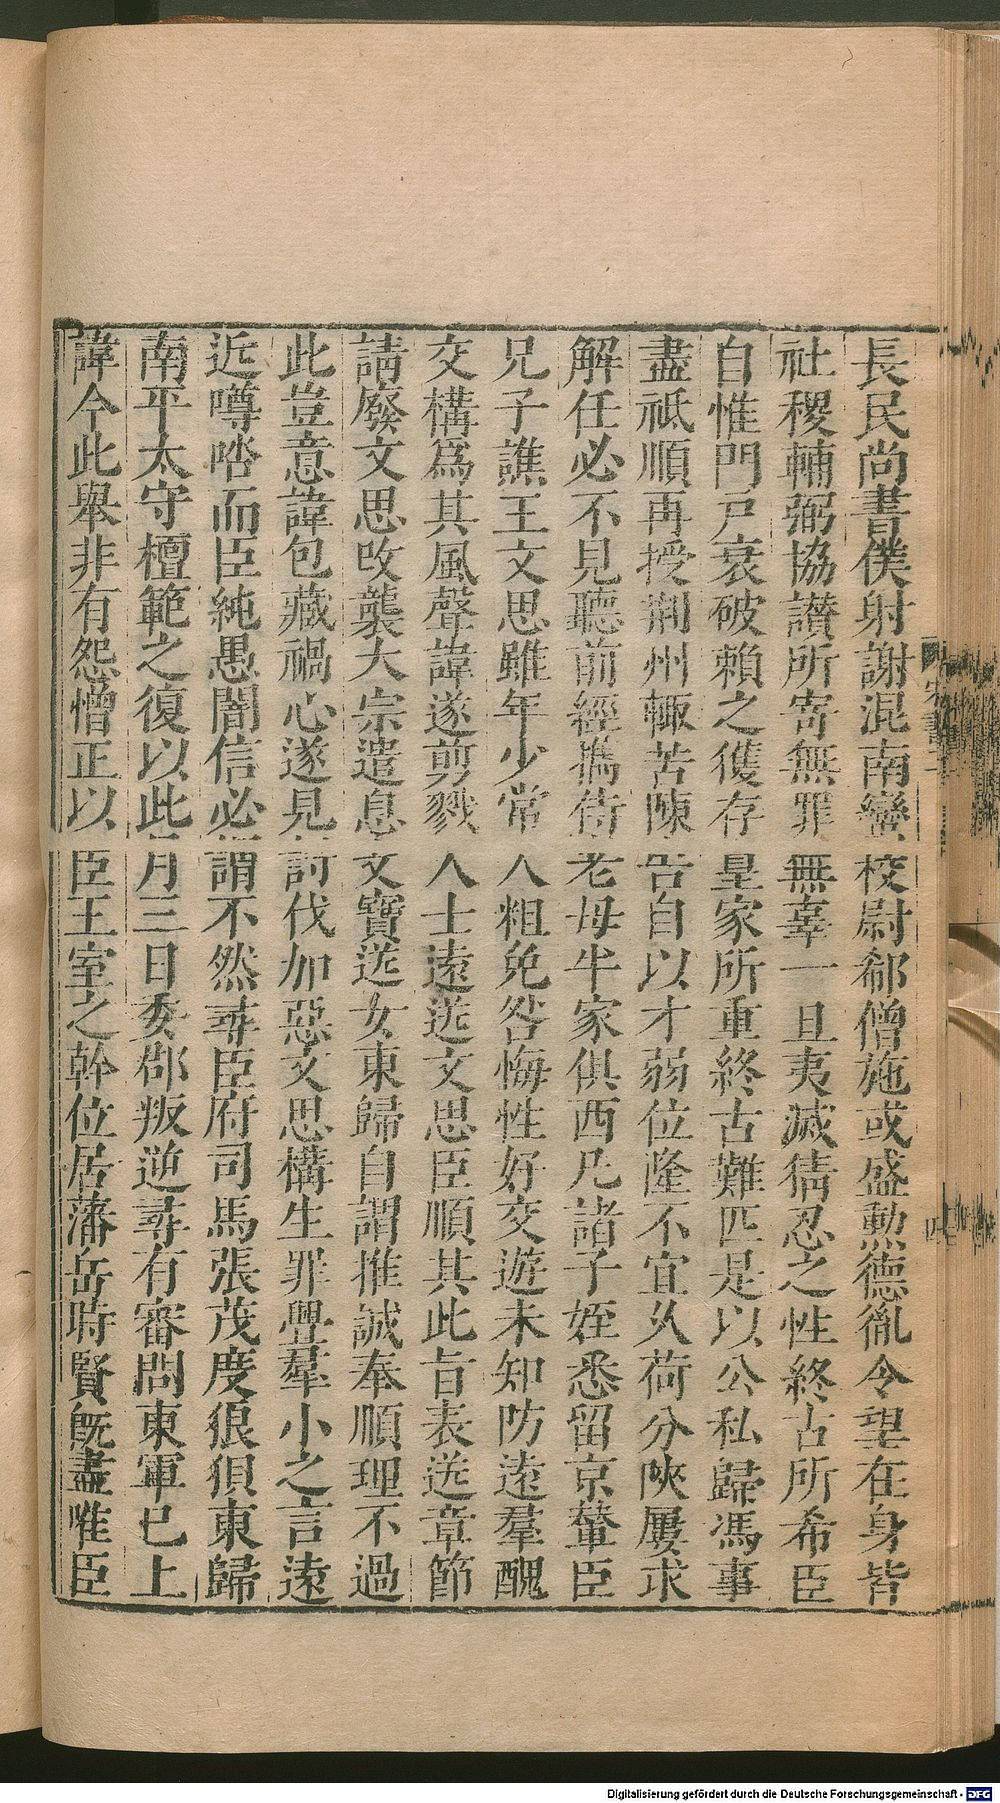 長民尚書僕射謝混南蠻校尉郗僧施或盛勲德胤令望在身皆
社稷輔弼協讃所寄無罪無辜一旦夷滅猜忍之性終古所希臣
自惟門戸衰破賴之獲存皇家所重終古難匹是以公私歸馮事
盡祗順再授荆州輒苦陳告自以才弱位隆不宜乆荷分陜屢求
解任必不見聽前經攜侍老母半家俱西凡諸子姪悉留京輦臣
兄子譙王文思雖年少常人粗免咎悔性好交遊未知防遠羣醜
交構爲其風聲諱遂剪戮人士遠送文思臣順其此旨表送章節
請廢文思改襲大宗遣息文寶送女東歸自謂推誠奉順理不過
此豈意諱包藏禍心遂見討伐加惡文思構生罪舋羣小之言遠
近噂𠴲而臣純愚闇信必謂不然尋臣府司馬張茂度狼狽東歸
南平太守檀範之復以此月三日委郡叛逆尋有審問東軍已上
諱今此舉非有怨憎正以臣王室之幹位居藩岳時賢旣盡唯臣
宋書二
四
Digitalisierung gefördert durch die Deutsche Forschungsgemeinschaft - DFG